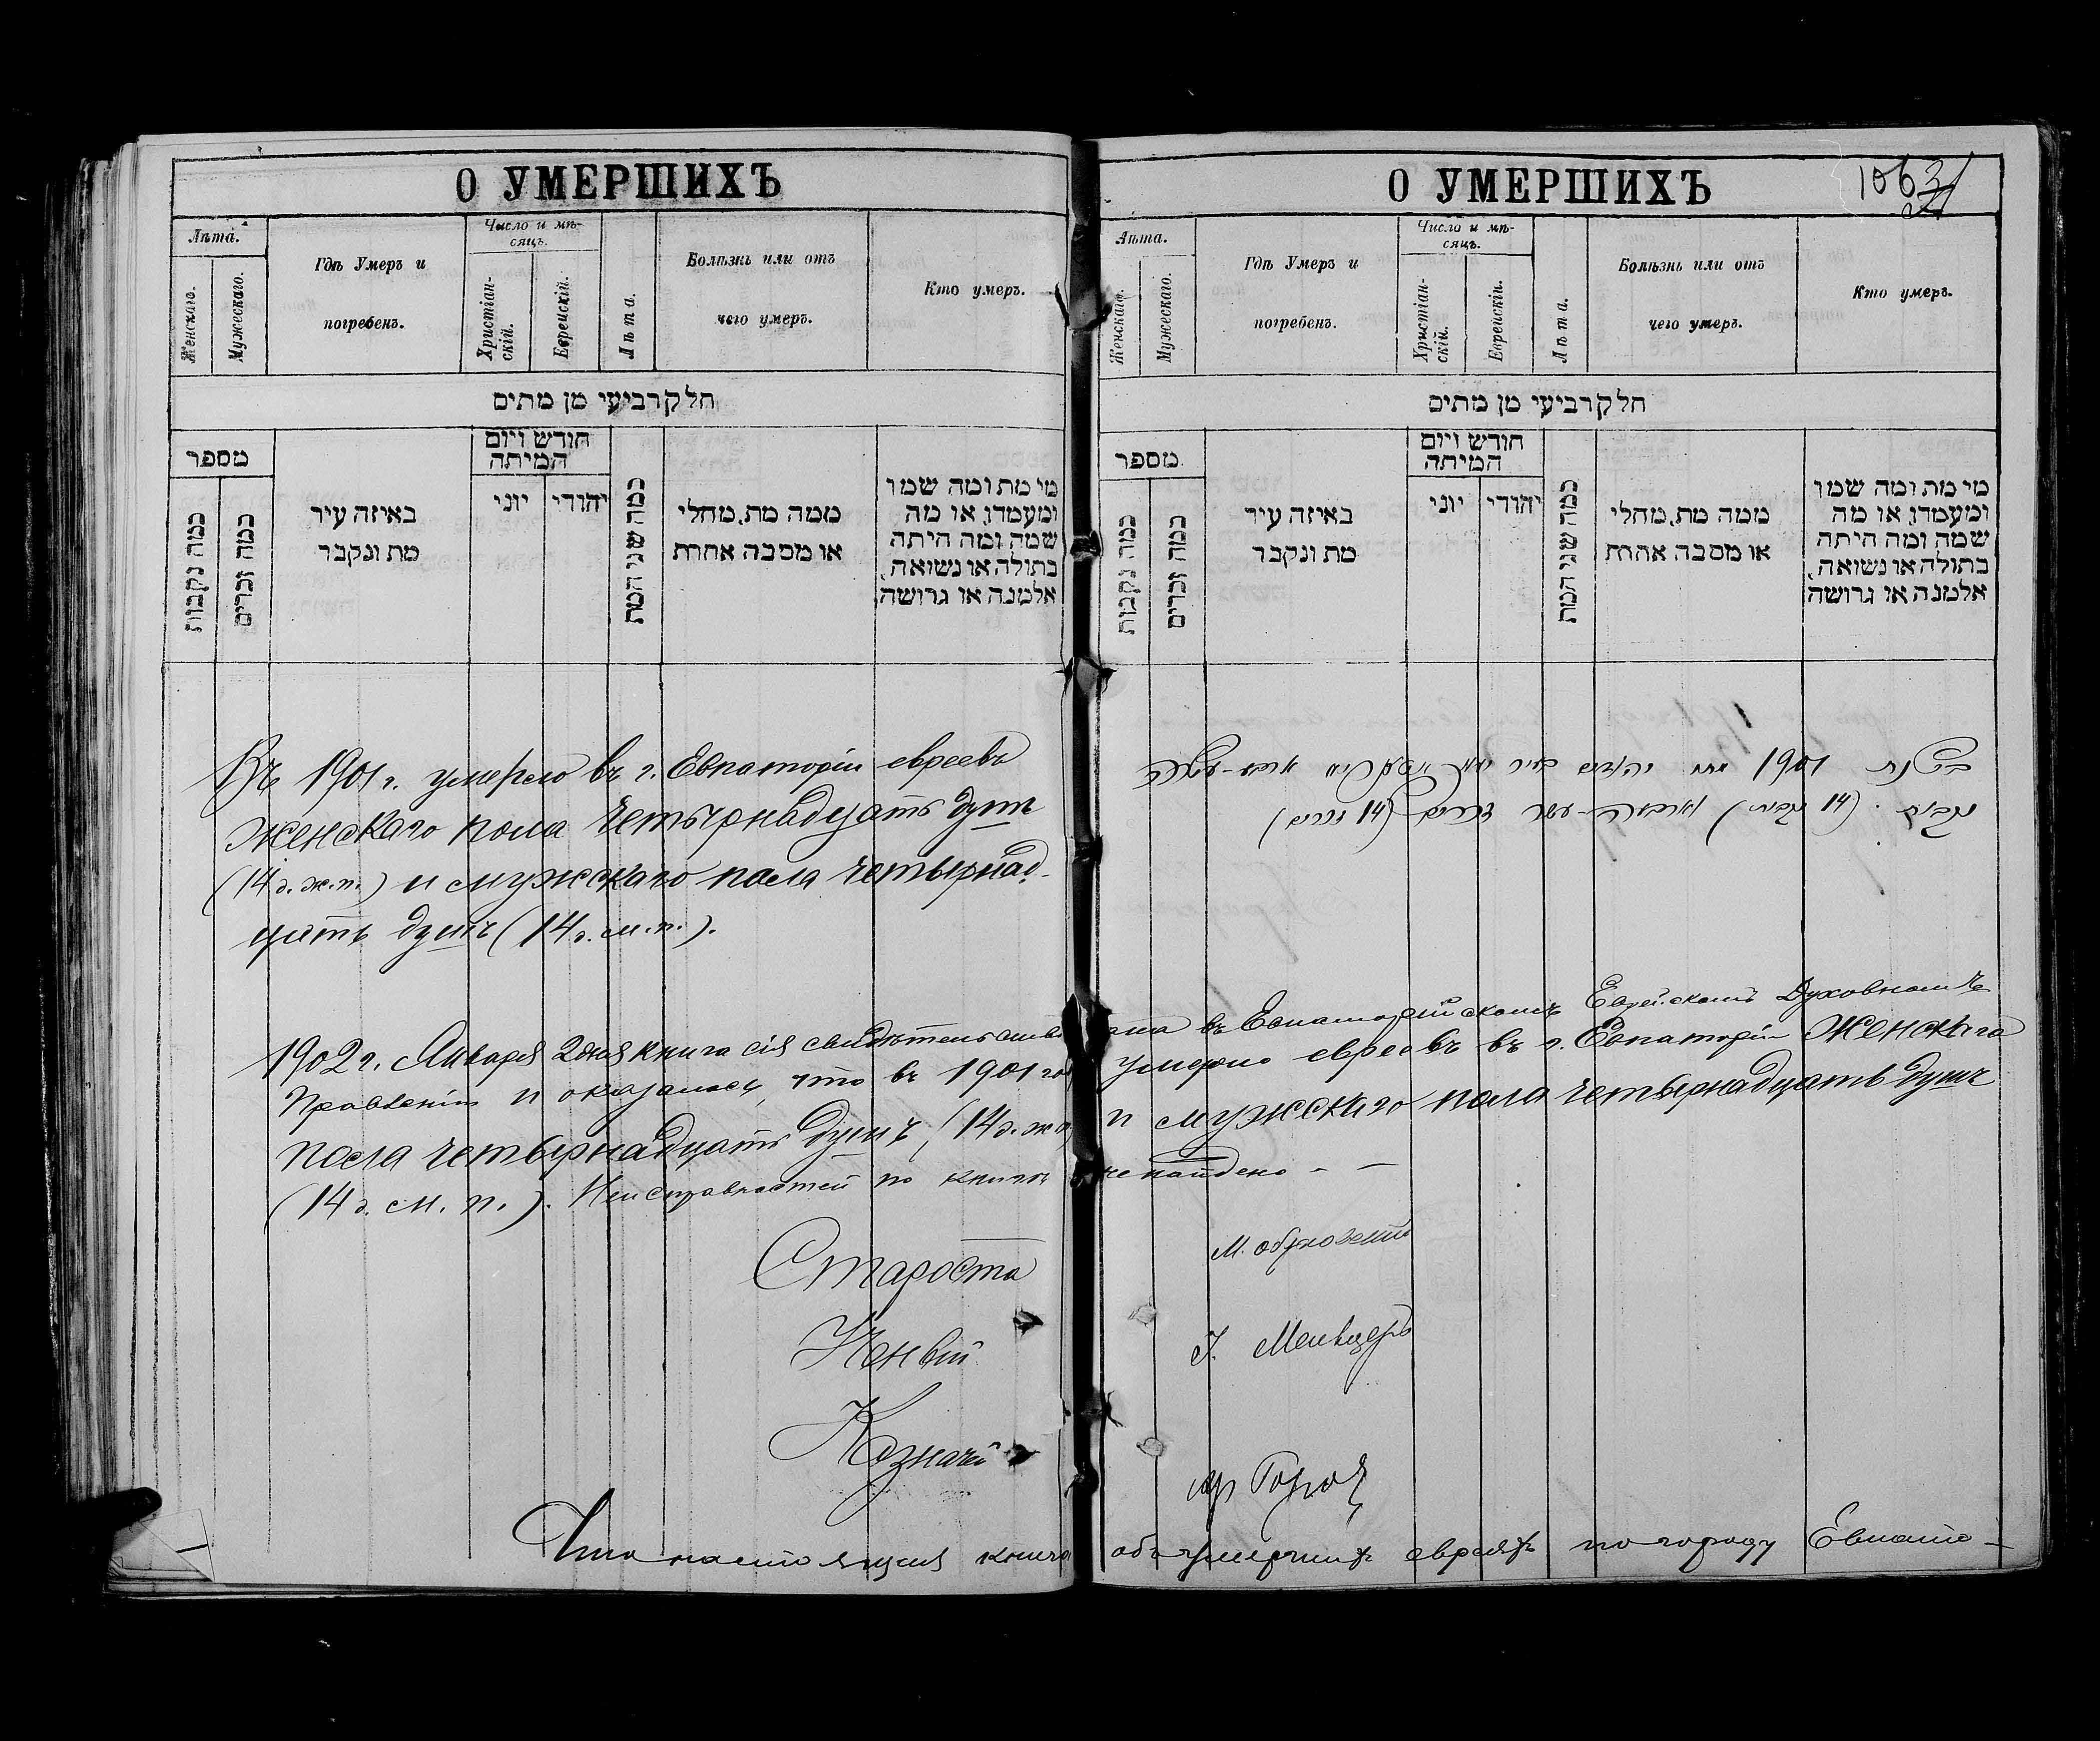 О УМЕРШИХЪ
Лѣта.
Женскаго.
Мужескаго.
Гдѣ Умеръ и
погребенъ.
Число и мѣ-
сяцъ.
Христіан-
скій.
Еврейскій.
Лѣта.
Болѣзнь или отъ
чего умеръ.
Кто умеръ.
חלק רביעי מן מתים
מספר
כמה נקבות
כמה זכרים
באיזה עיר
מת ונקבר
חודש ויום
המיתה
יוני
יהודי
כמה שני המת
ממה מת, מחלי
או מסבה אחרת
מי מת ומה שמו
ומעמדו, או מה
שמה ומה היתה
בתולה או נשואה,
אלמנה או גרושה
Въ 1901 г. умерло въ г. Евпаторіи евреевъ
женскаго пола четырнадцать душъ
(14 д. ж. п.) и мужскаго пола четырнад-
цать душъ (14 д. м. п.).
О УМЕРШИХЪ
1063
Лѣта.
Женскаго.
Мужескаго.
Гдѣ Умеръ и
погребенъ.
Число и мѣ-
сяцъ.
Христіан-
скій.
Еврейскій.
Лѣта.
Болѣзнь или отъ
чего умеръ.
Кто умеръ.
חלק רביעי מן מתים
מספר
כמה נקבות
כמה זכרים
באיזה עיר
מת ונקבר
חודש ויום
המיתה
יוני
יהודי
כמה שני המת
ממה מת, מחלי
או מסבה אחרת
מי מת ומה שמו
ומעמדו, או מה
שמה ומה היתה
בתולה או נשואה,
אלמנה או גרושה
בשנת 1901 מתו ארבע-עשרה
נקבות (14 נקבות) וארבעה-עשר זכרים (14 זכרים)
1902 г. Января 2 дня книга сія свидѣтельствована въ Евпаторійскомъ Еврейскомъ Духовномъ
Правленіи и оказалось, что въ 1901 году умерло евреевъ въ г. Евпаторіи женскаго
пола четырнадцать душъ (14 д. ж. п.) и мужскаго пола четырнадцать душъ
(14 д. м. п.). Неисправностей по книгѣ не найдено - -
Староста
М.
Ученый
І.
Казначей
Что настоящая книга объ умершихъ евреяхъ по городу Евпато-